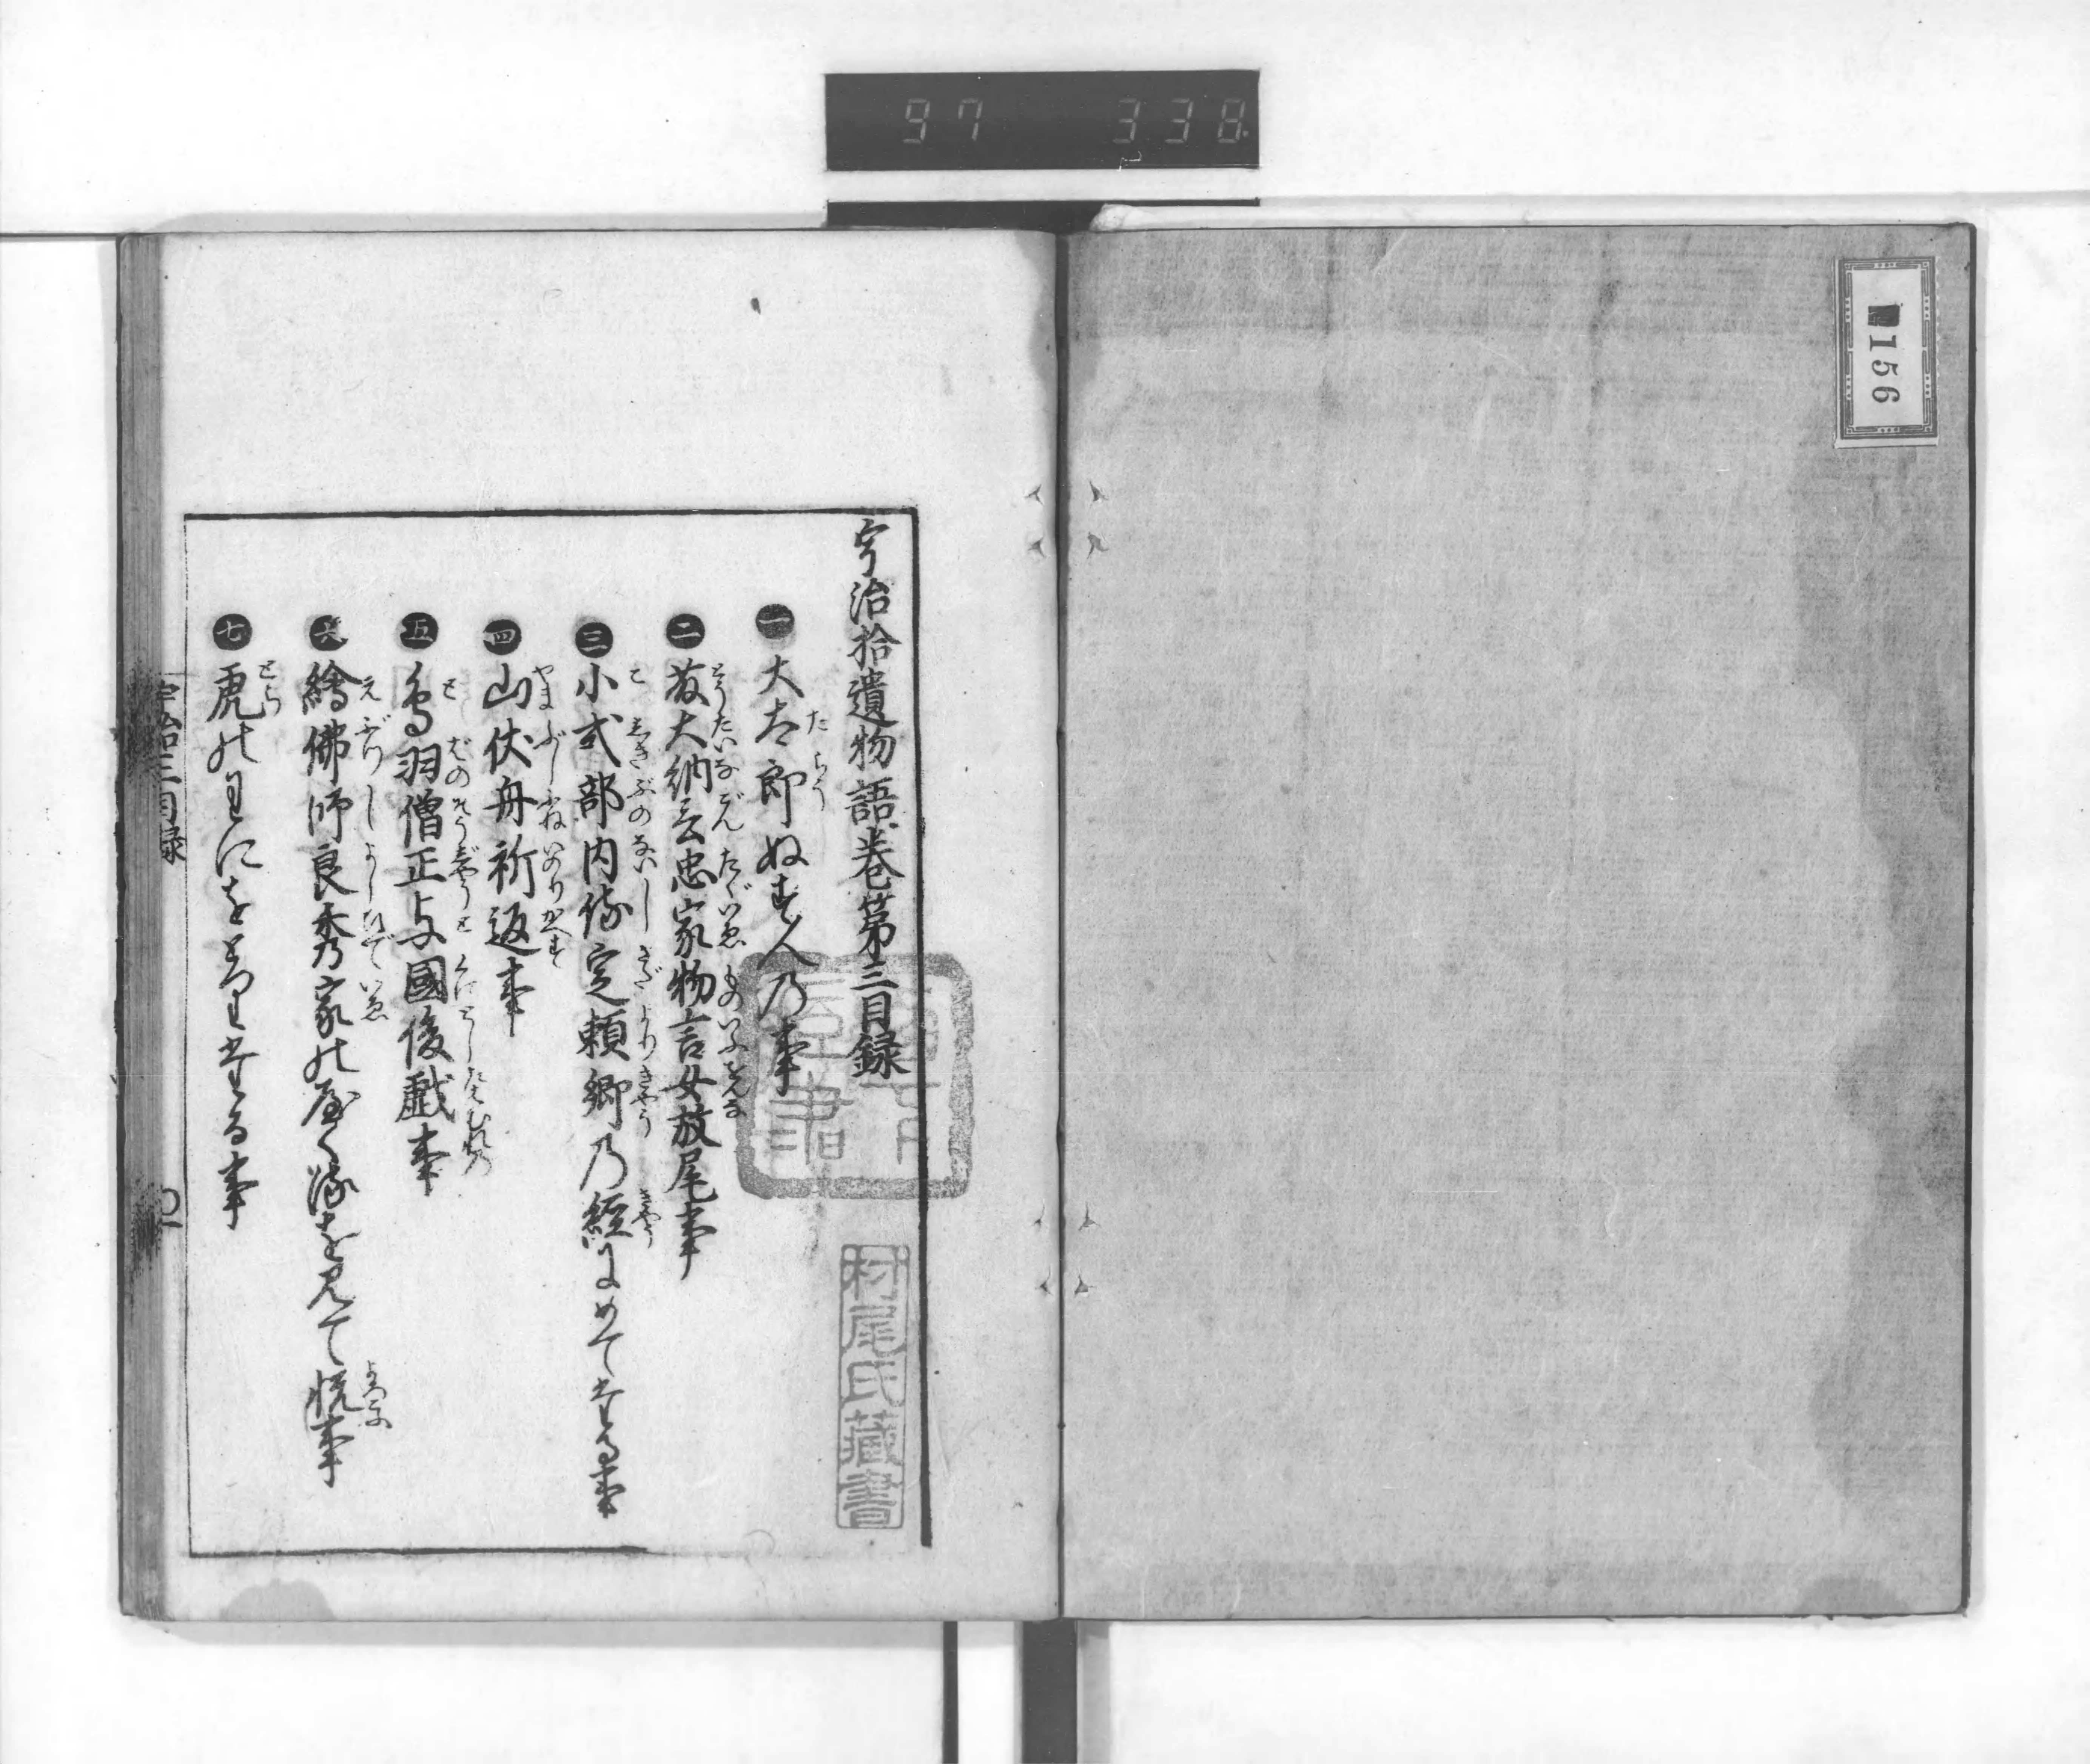 97 338
156
宇治拾遺物語巻第三目録
一 大太郎ぬす人乃事
二 藤大納言忠家物言女放屁事
三 小式部内侍定頼卿乃経にめでたる事
四 山伏舟祈返事
五 鳥羽僧正与國俊戯事
六 繪佛師良秀家の焼くるを見て悦事
七 虎のわにをとりたる事
宇治三目録
村尾氏藏書